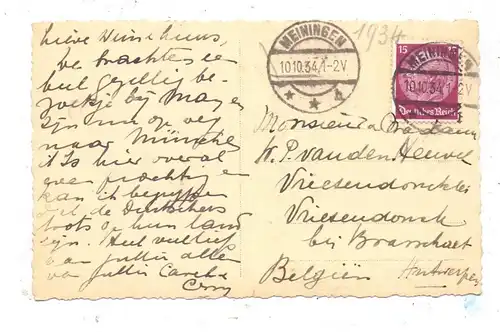 lieve
we brachten een
heel gezellig be-
zoekje bij
zijn nu op weg
naar München
't Is hier overal
even prachtig en
kan ik begrijpen
dat de Duitschers
trots op hun land
zijn. Heel veel
van jullie allen
van jullie
MEININGEN
10.10.34.1-2V
1934
15 15
Deutsches Reich
MEININGEN
10.10.34.1-2V
Monsieur & Madame
W. P. van den Heuvel
Vriesendoncklei
Vriesendonck
bij Brasschaet
België Antwerpen